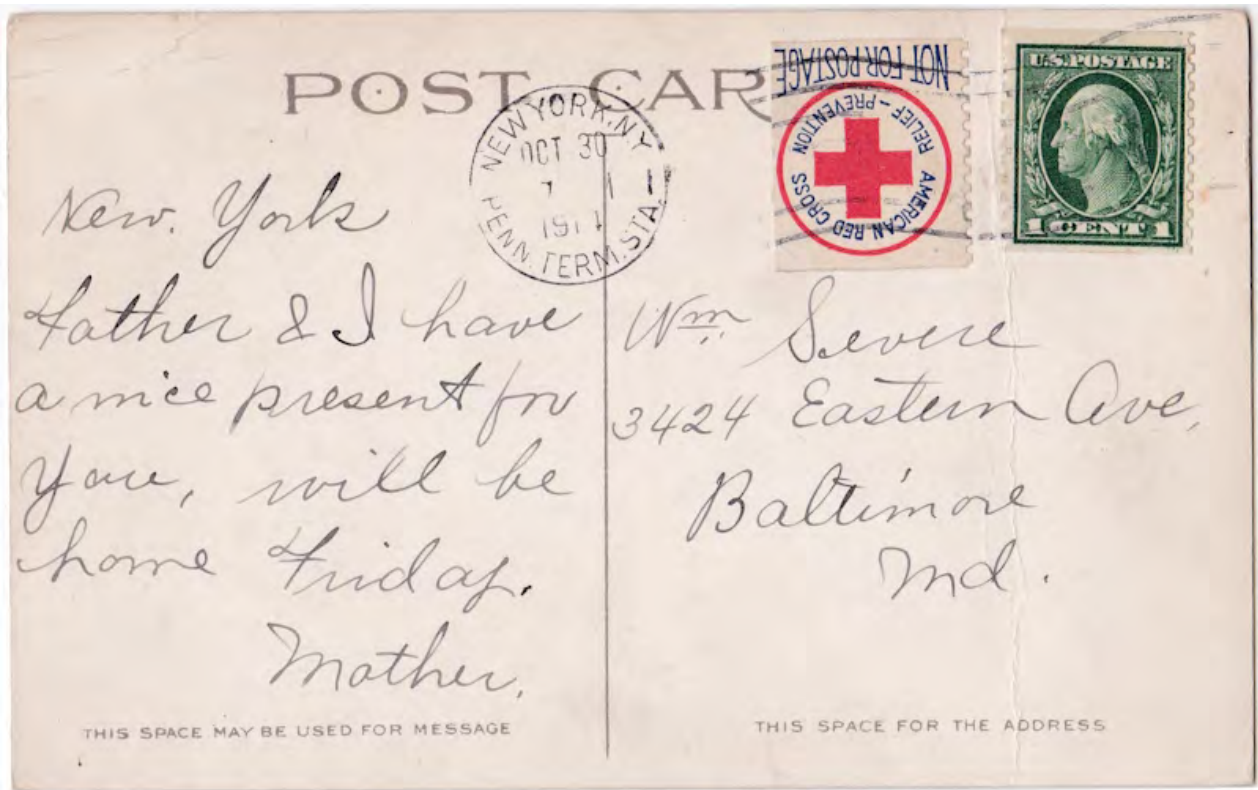 POST CAR
NEW YORK, N.Y.
OCT 30
1
PENN. TERM. STA.
NOT FOR POSTAGE
RELIEF – PREVENTION
AMERICAN RED CROSS
U.S. POSTAGE
1 CENT 1
New. York
Father & I have
a nice present for
you, will be
home Friday.
Mother.
Wm Severe
3424 Eastern Ave,
Baltimore
Md.
THIS SPACE MAY BE USED FOR MESSAGE
THIS SPACE FOR THE ADDRESS